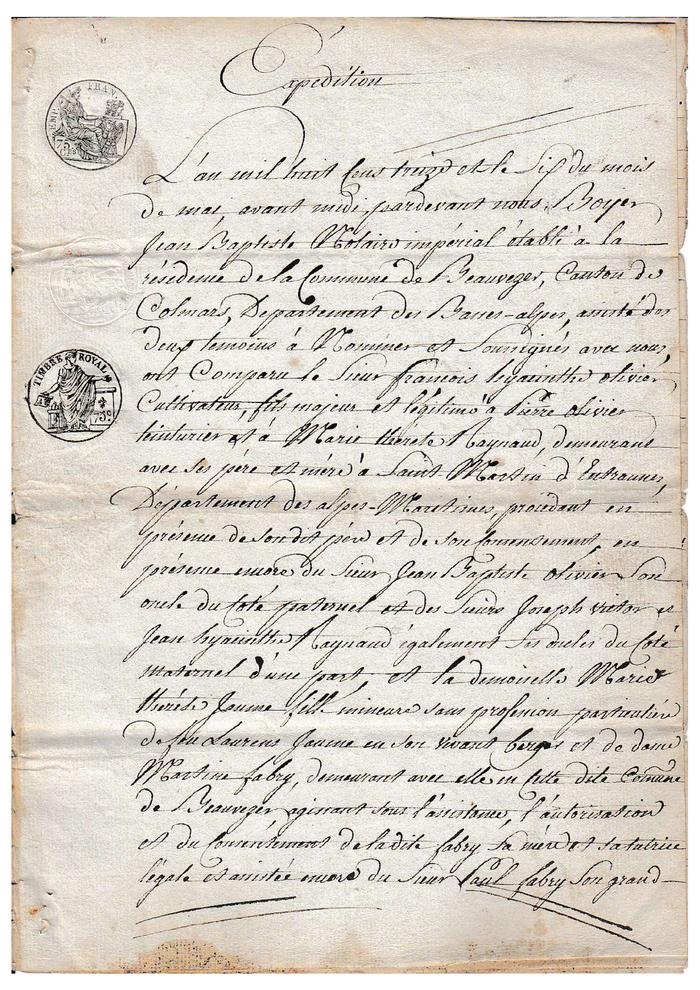 Expédition
EMP. FRAN.
75
Cs
L'an mil huit cens treize et le six du mois
de mai, avant midi, pardevant nous Boyer
Jean Baptiste Notaire impérial établi à la
résidence de la Commune de Beauvezer, Canton de
Colmars, Département des Basses-alpes, assisté des
deux temoins à Nommer et Soussignés avec nous,
ont Comparu le Sieur françois hyacinthe olivier
Cultivateur, fils majeur et légitime à Pierre olivier
TIMBRE ROYAL
75c
teinturier et à Marie therese Raynaud, demeurant
avec ses père et mère à Saint-Martin d'Entraunes,
Département des alpes-Maritimes, procédant en
présence de son dit père et de son consentement, en
présence encore du Sieur Jean Baptiste olivier Son
oncle du Coté paternel et des Sieurs Joseph victor et
Jean hyacinthe Raynaud également Ses oncles du Coté
maternel d'une part, et la demoiselle Marie
thérèse Jaume fille mineure sans profession particulière
de feu Laurens Jaume en son vivant berger et de dame
Martine fabry, demeurant avec elle en Cette dite Comune
de Beauvezer agissant sous l'assistance, l'autorisation
et du Consentement de ladite fabry Sa mère et sa tutrice
légale et assistée encore du Sieur Paul fabry Son grand